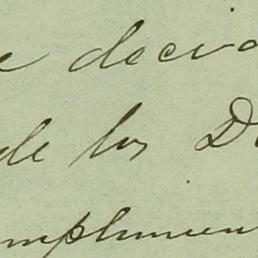 e decia
de los D
mplimien